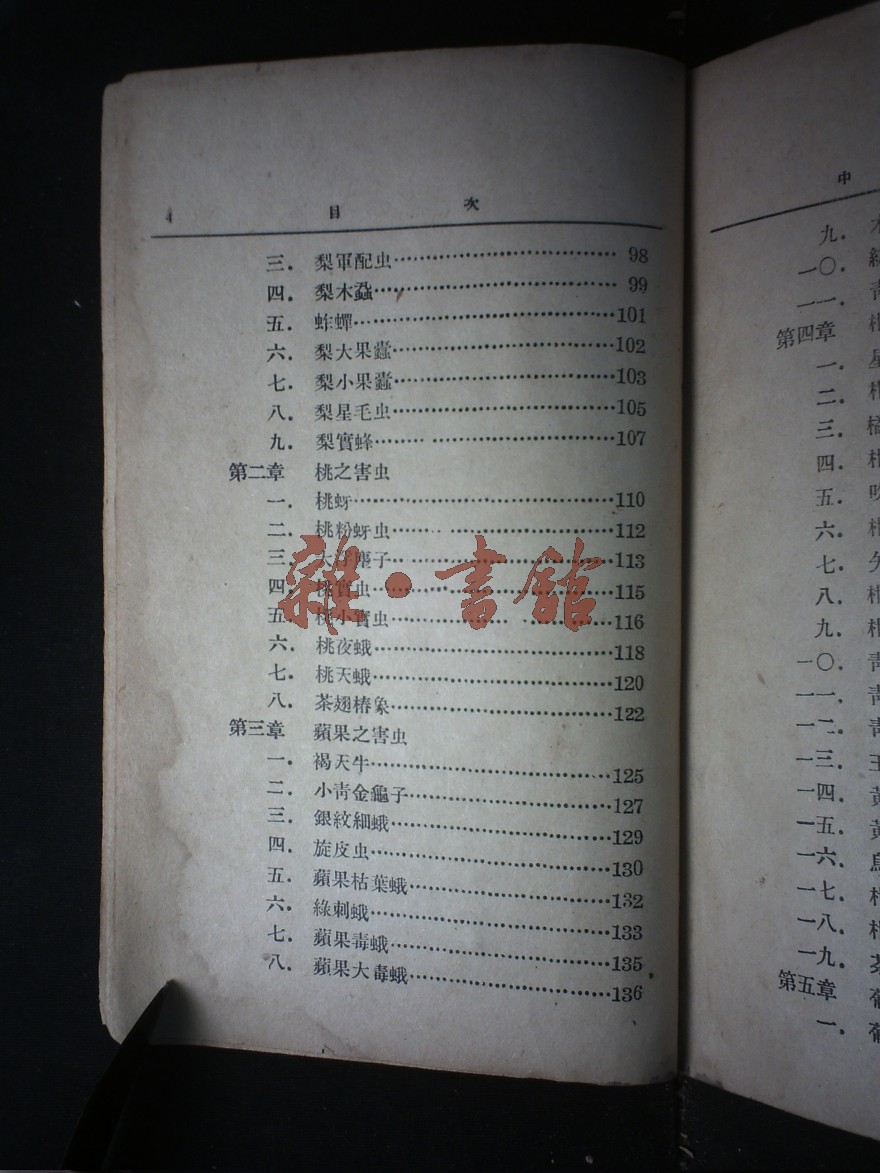 4 目 次
三. 梨軍配虫 98
四. 梨木蝨 99
五. 蚱蟬 101
六. 梨大果蠹 102
七. 梨小果蠹 103
八. 梨星毛虫 105
九. 梨實蜂 107
第二章 桃之害虫
一. 桃蚜 110
二. 桃粉蚜虫 112
三. 浮塵子 113
四. 桃實虫 115
五. 桃小實虫 116
六. 桃夜蛾 118
七. 桃天蛾 120
八. 茶翅椿象 122
第三章 蘋果之害虫
一. 褐天牛 125
二. 小靑金龜子 127
三. 銀紋細蛾 129
四. 旋皮虫 130
五. 蘋果枯葉蛾 132
六. 綠刺蛾 133
七. 蘋果毒蛾 135
八. 蘋果大毒蛾 136
雜·書館
中
九.
一〇.
一一. 靑
第四章 柑
一. 星
二. 柑
三. 橘
四. 柑
五. 吹
六. 柑
七. 矢
八. 柑
九. 柑
一〇. 靑
一一. 靑
一二. 靑
一三. 玉
一四. 黃
一五. 黃
一六.
一七. 柑
一八. 柑
一九. 茶
第五章 葡
一. 葡